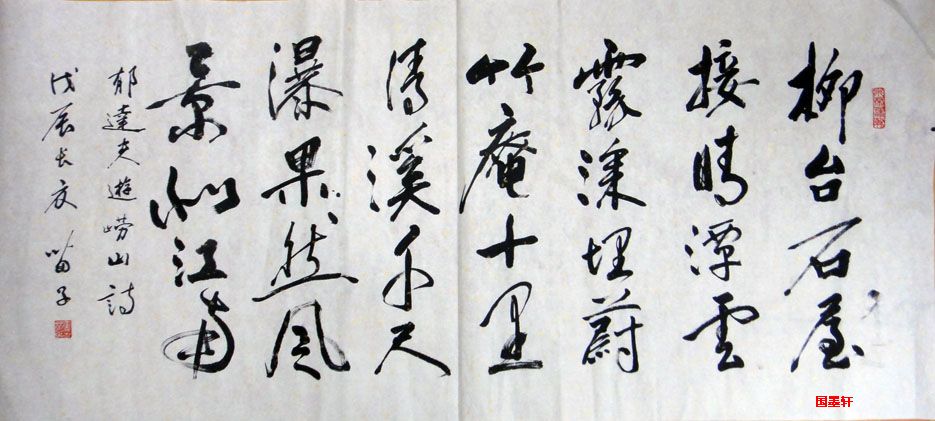 柳台石屋
接晴潭雲
霧深埋蔚
竹庵十里
清溪千尺
瀑果然风
景似江南
郁達夫遊嶗山詩
戊辰长夏 苗子
国墨轩